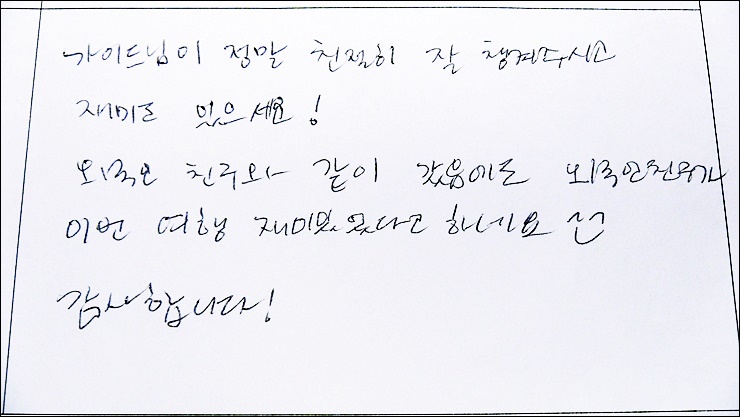 가이드님이 정말 친절히 잘 챙겨주시고
재미도 있으세요!
외국인 친구와 같이 갔음에도 외국인친구가
이번 여행 재미있었다고 하네요 ^^
감사합니다!